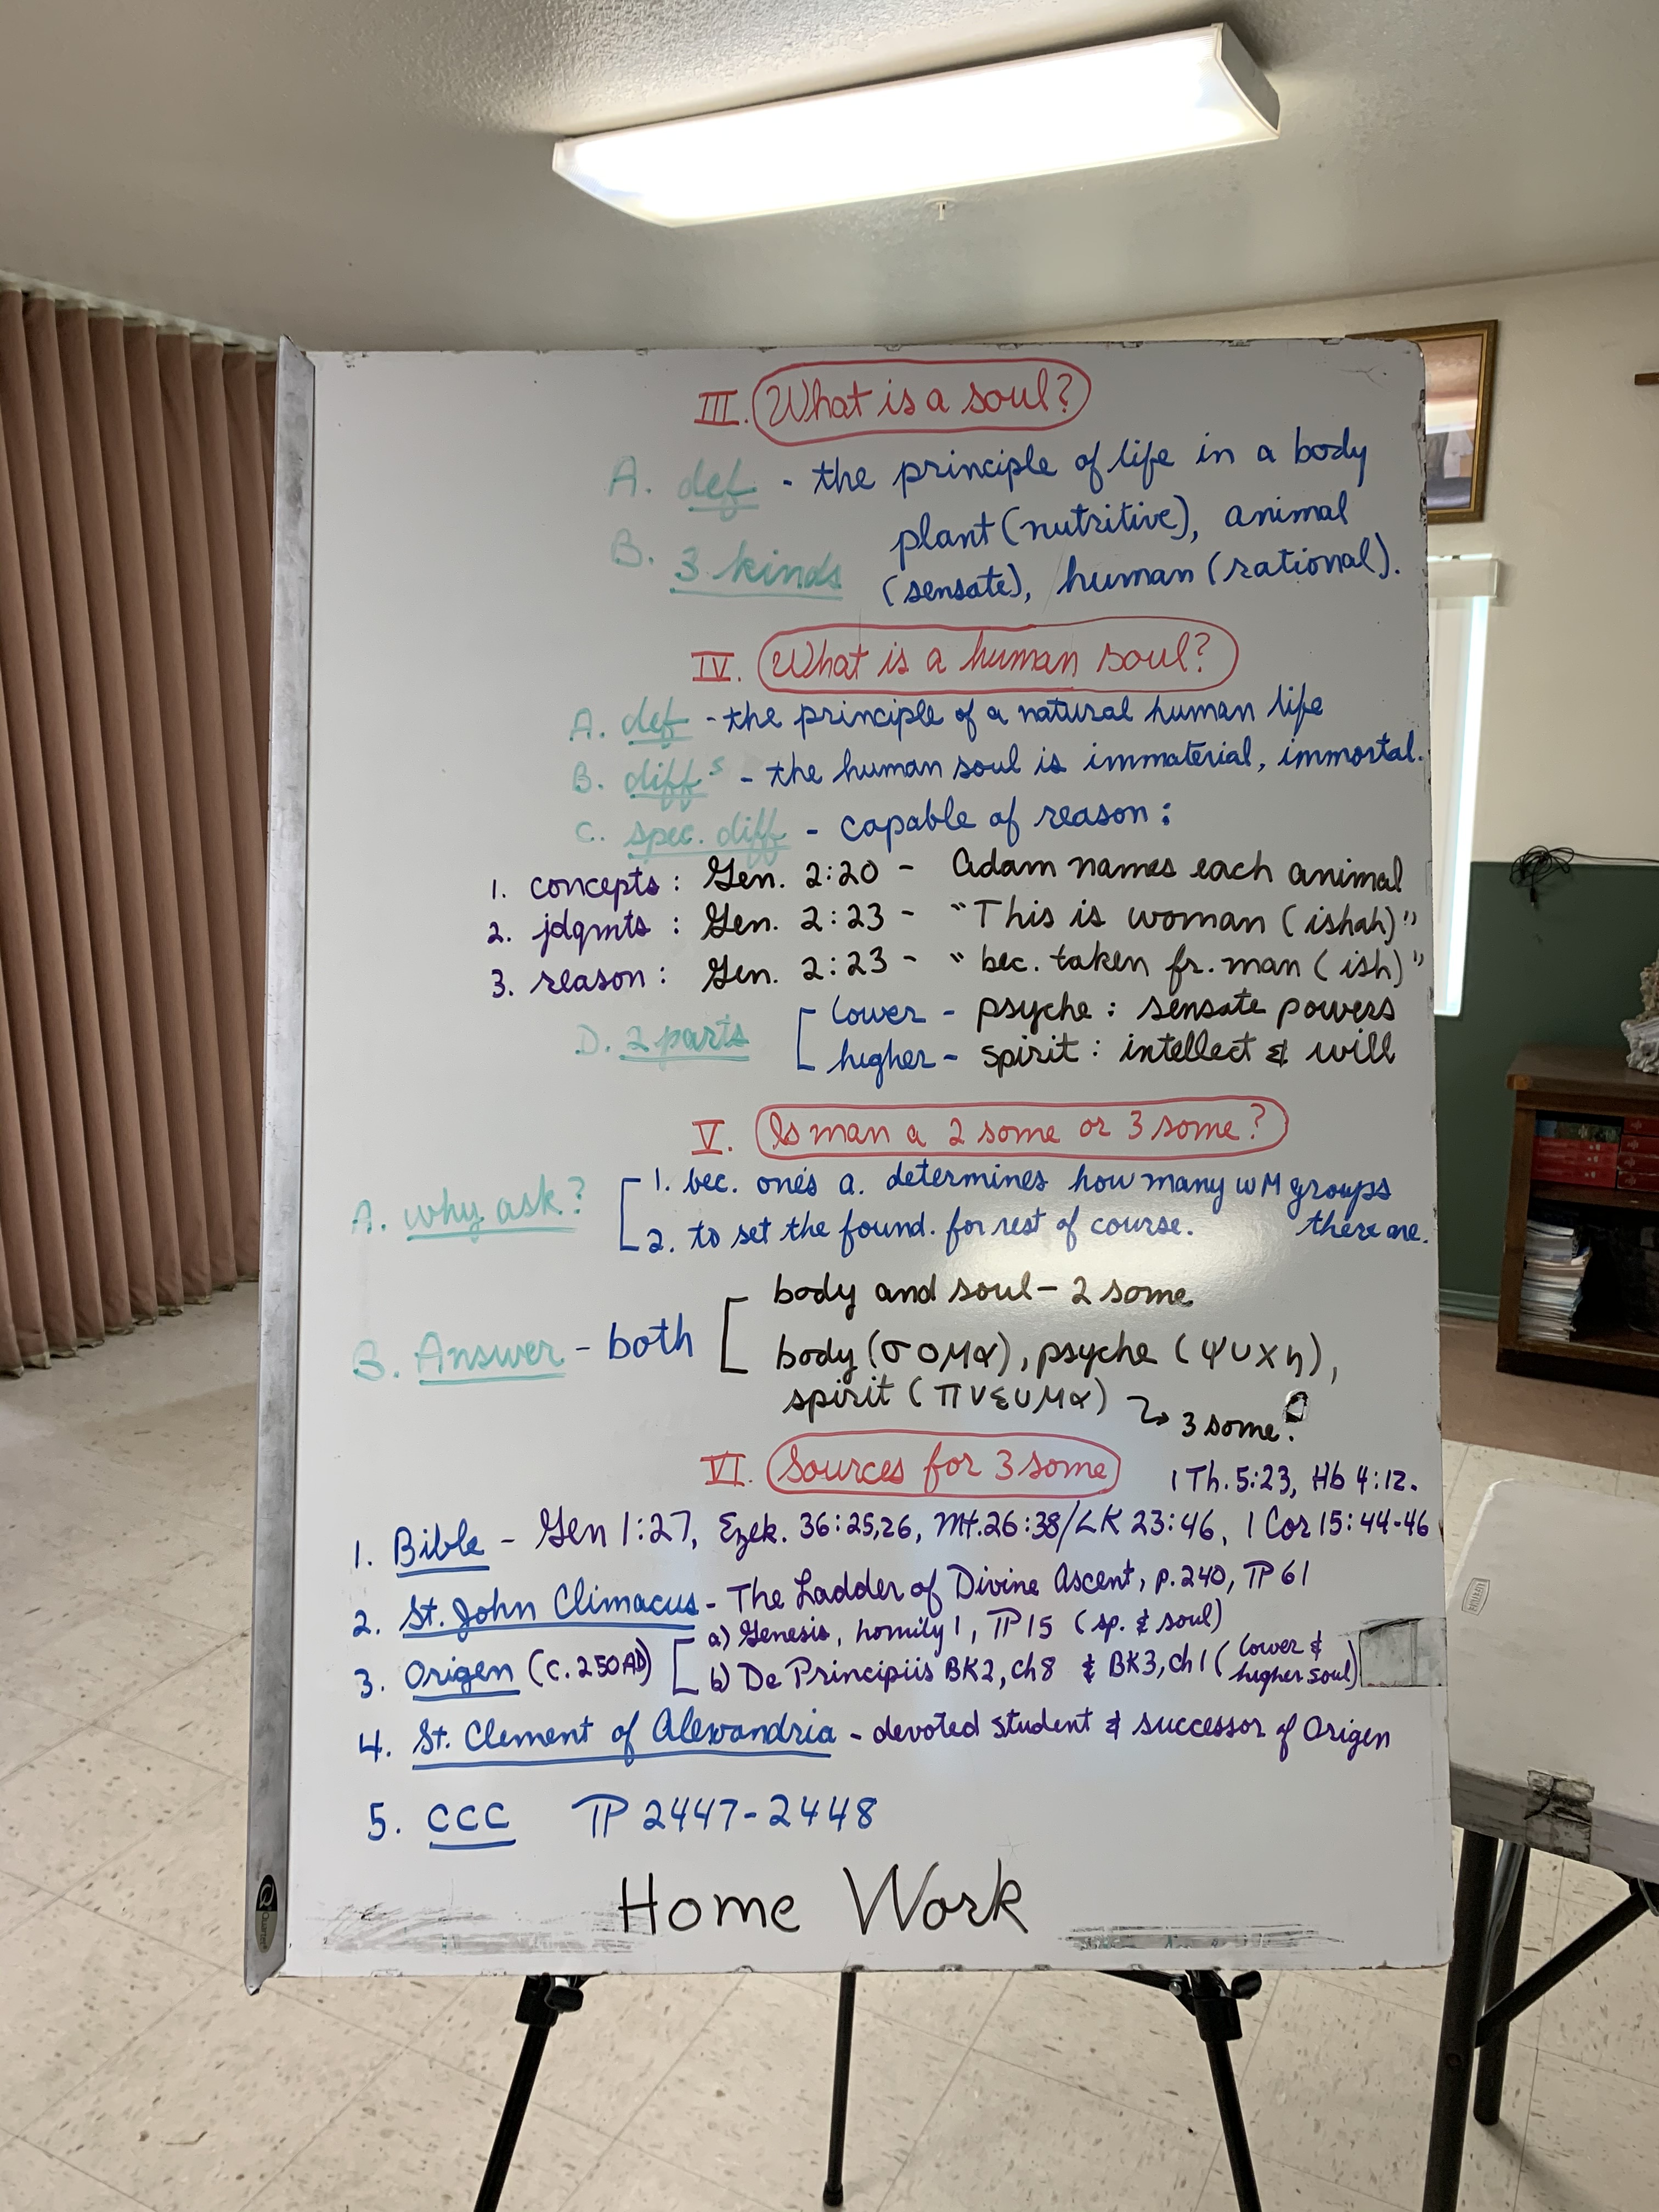 III. What is a soul?
A. def - the principle of life in a body
B. 3 kinds plant (nutritive), animal
(sensate), human (rational).
IV. What is a human soul?
A. def - the principle of a natural human life
B. diff s - the human soul is immaterial, immortal.
C. spec. diff - capable of reason:
1. concepts: Gen. 2:20 - Adam names each animal
2. jdgmts: Gen. 2:23 - "This is woman (ishah)"
3. reason: Gen. 2:23 - "bec. taken fr. man (ish)"
D. 2 parts [ lower - psyche: sensate powers
higher - spirit: intellect & will
V. Is man a 2 some or 3 some?
A. why ask? [ 1. bec. one's a. determines how many wM groups
there are.
2. to set the found. for rest of course.
B. Answer - both [ body and soul - 2 some
body (σομα), psyche (ψυχη),
spirit (πνευμα) → 3 some.
VI. Sources for 3 some
1 Th. 5:23, Hb 4:12.
1. Bible - Gen 1:27, Ezek. 36:25,26, Mt. 26:38/LK 23:46, 1 Cor 15:44-46
2. St. John Climacus - The Ladder of Divine Ascent, p. 240, ¶ 61
3. Origen (c. 250 AD) [ a) Genesis, homily 1, ¶ 15 (sp. & soul)
b) De Principiis BK2, ch 8 & BK3, ch 1 (lower &
higher soul)
4. St. Clement of Alexandria - devoted student & successor of Origen
5. CCC ¶ 2447-2448
Home Work
Quartet